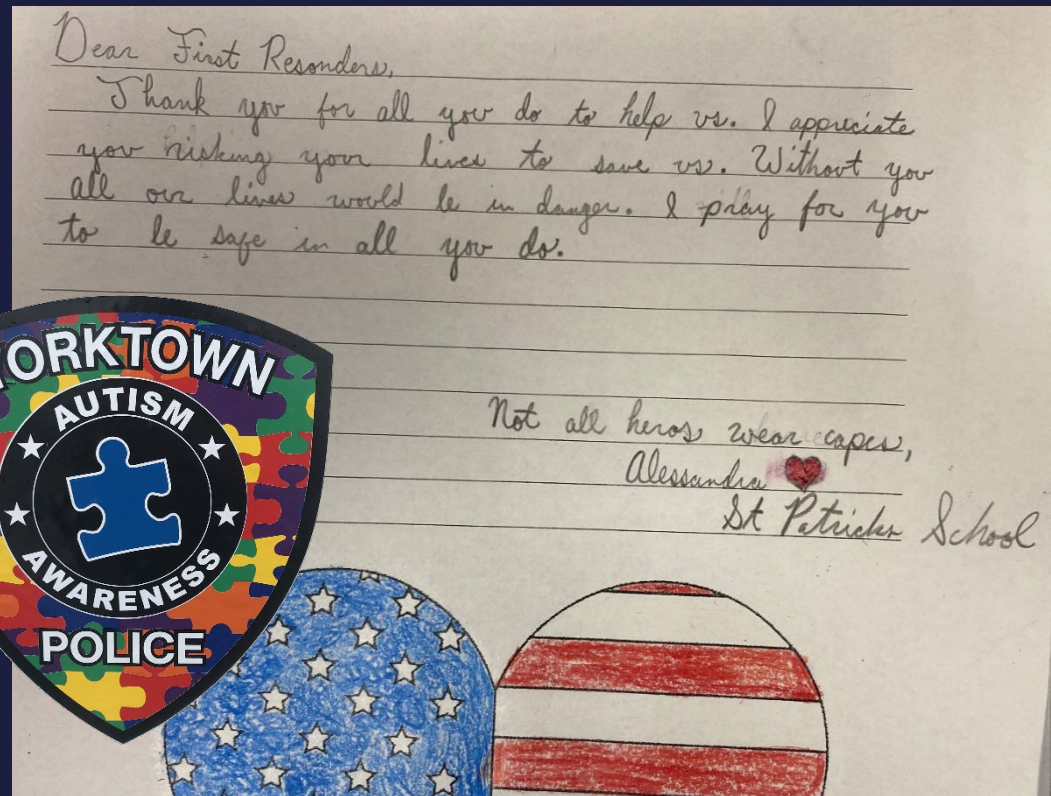 Dear First Resonders,
Thank you for all you do to help us. I appreciate
you risking your lives to save us. Without you
all our lives would be in danger. I pray for you
to be safe in all you do.
Not all heros wear capes,
Alessandra
St Patricks School
YORKTOWN
AUTISM
AWARENESS
POLICE